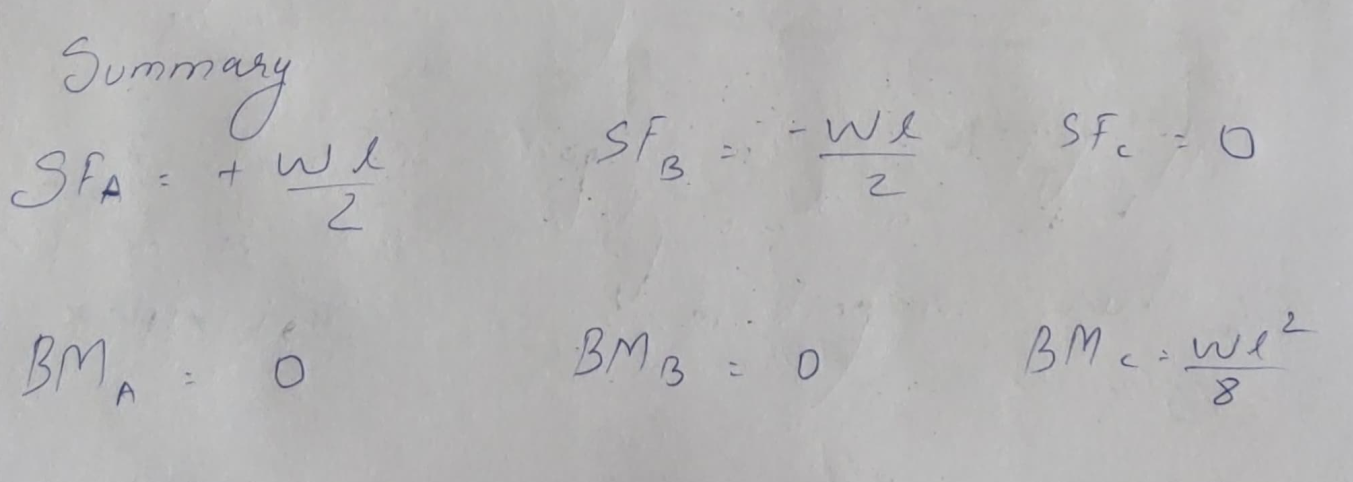 Summary
SF_A = + wl/2    SF_B = -wl/2    SF_c = 0
BM_A = 0    BM_B = 0    BM_c = wl²/8